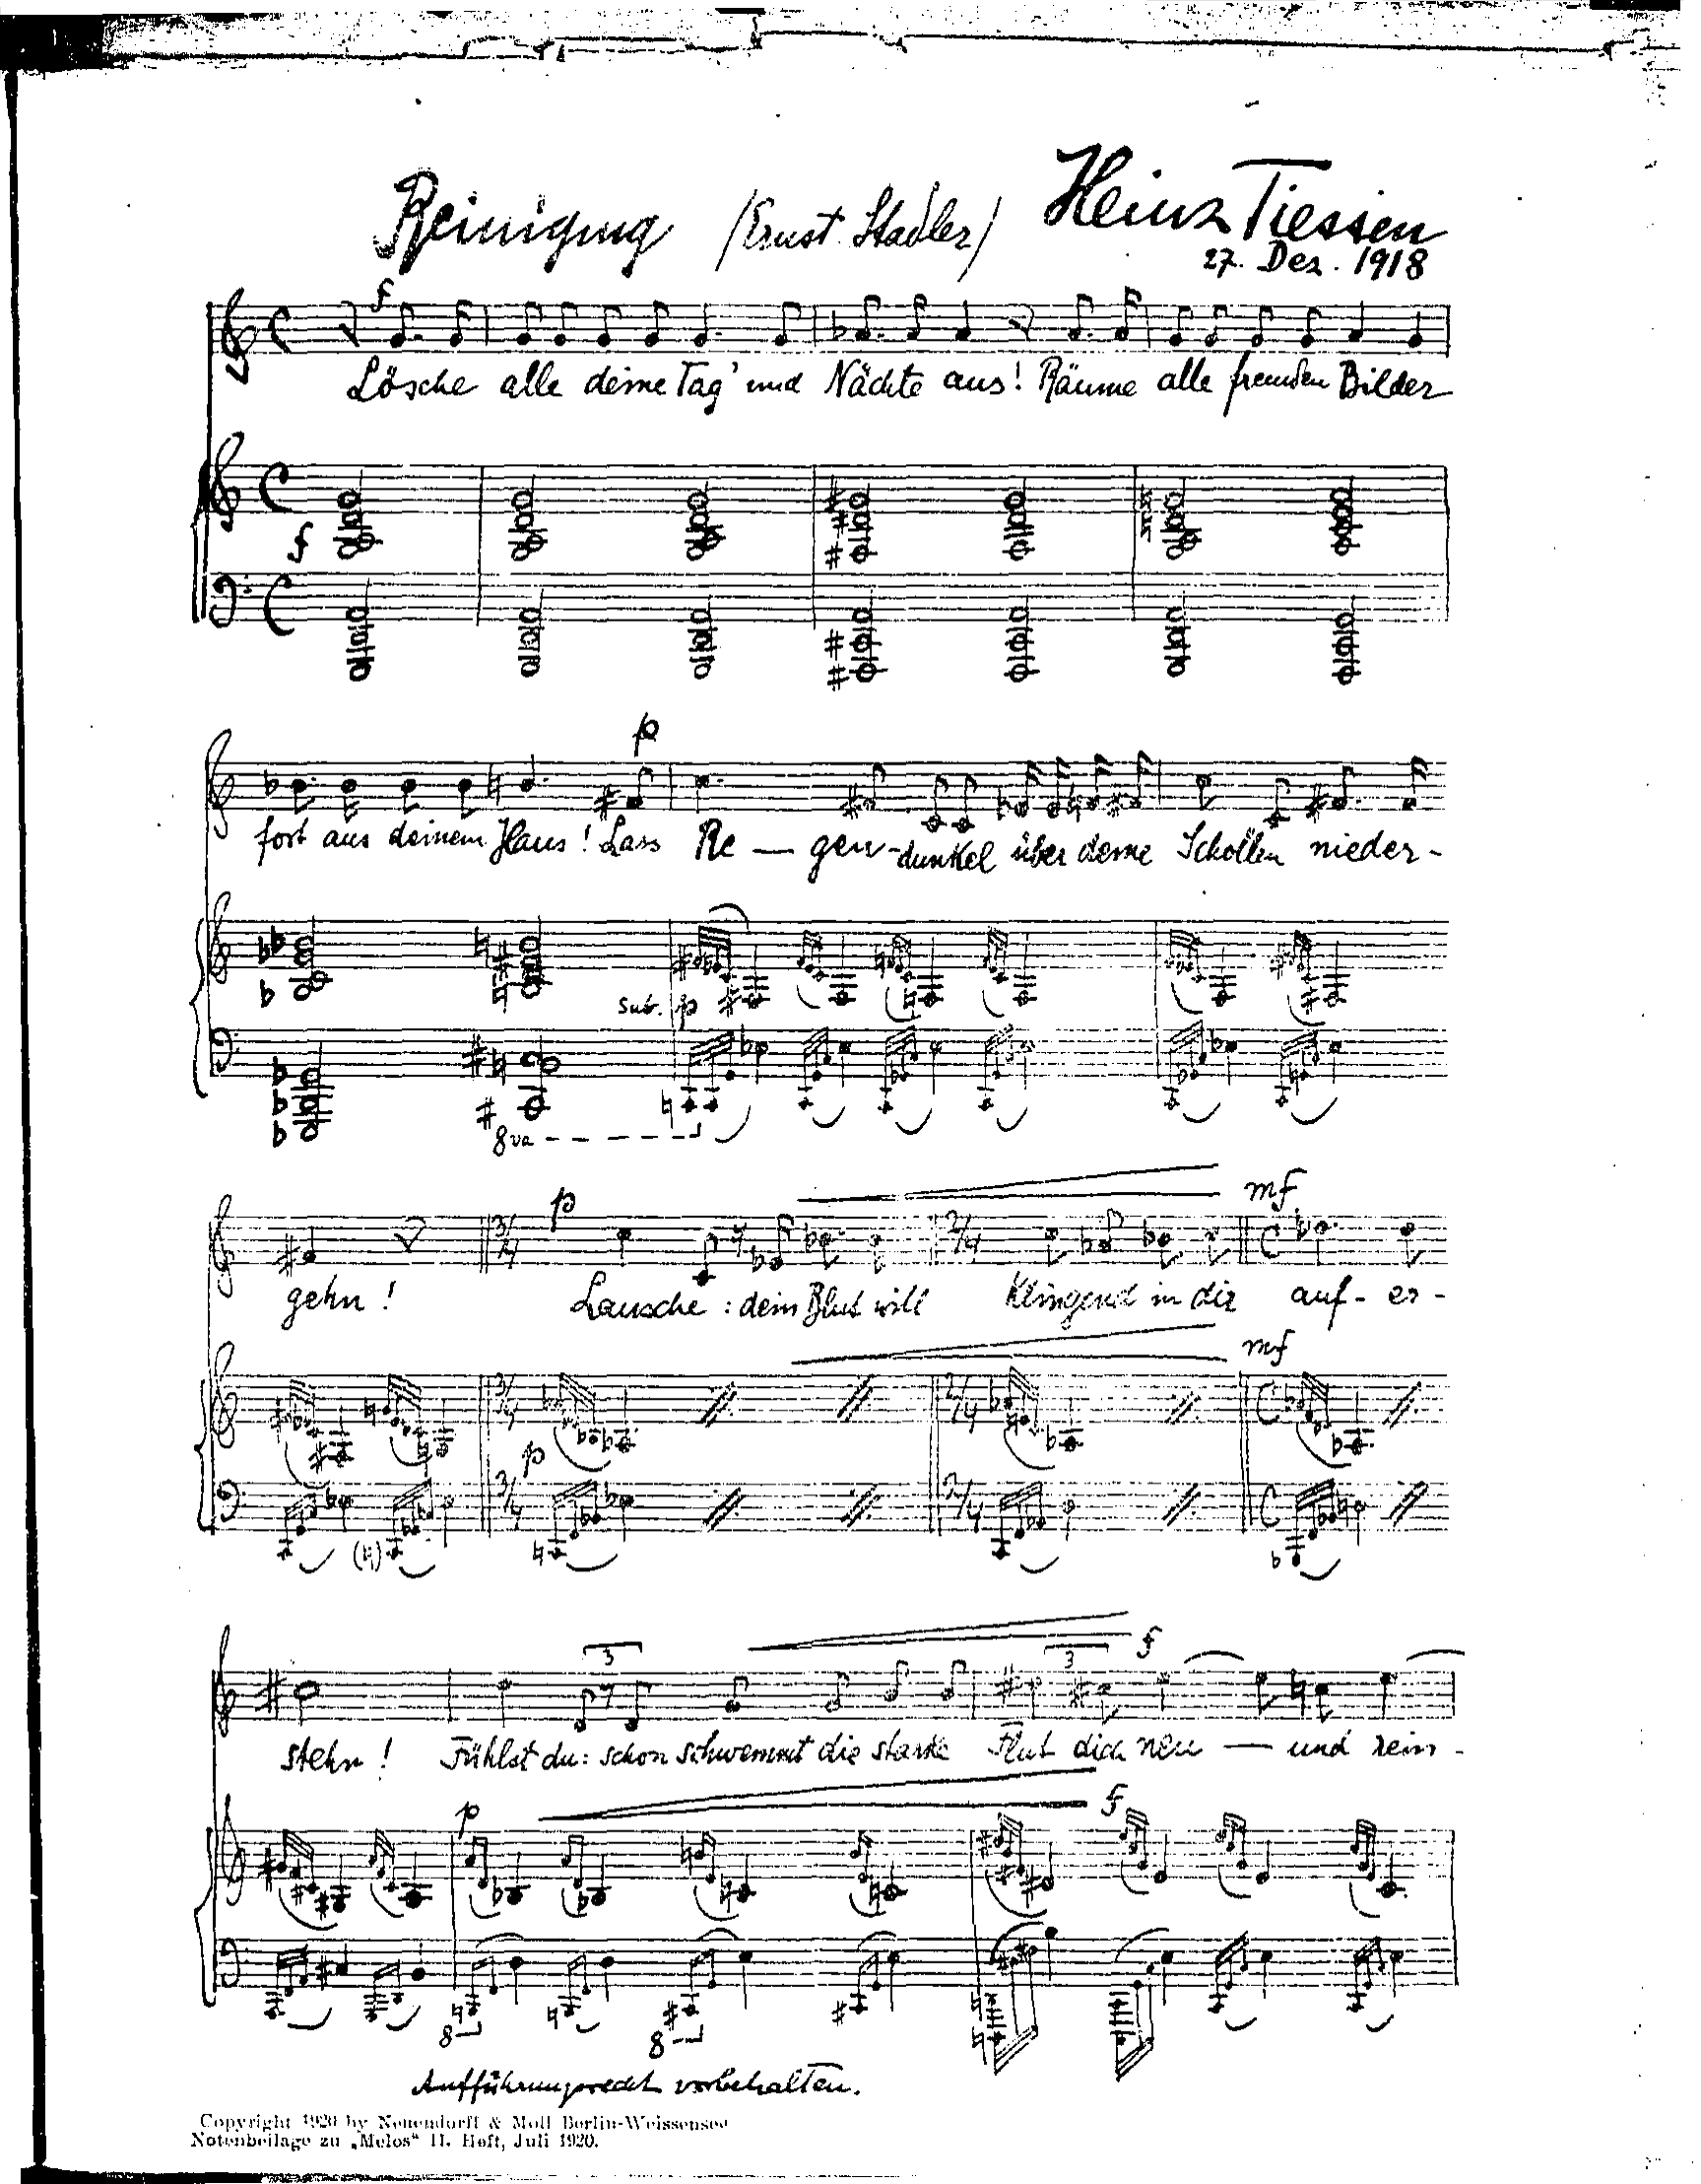 Reinigung (Ernst Stadler) Heinz Tiessen
27. Dez. 1918
f
Lösche alle deine Tag' und Nächte aus! Räume alle fremden Bilder
f
p
fort aus deinem Haus! Lass Re — gen-dunkel über deine Schollen nieder-
sub. p
8va
p mf
gehn! Lausche: dein Blut will klingend in dir auf- er-
mf
p
3 3 f
stehn! Fühlst du: schon schwemmt die starke Flut dich neu — und rein -
p f
8 8
Aufführungsrecht vorbehalten.
Copyright 1920 by Neuendorff & Moll Berlin-Weissensee
Notenbeilage zu „Melos“ 11. Heft, Juli 1920.